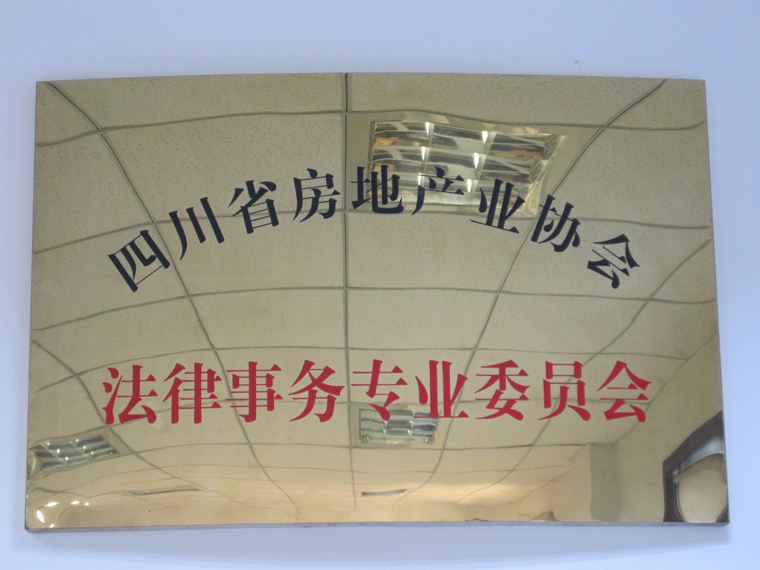 四川省房地产业协会
法律事务专业委员会